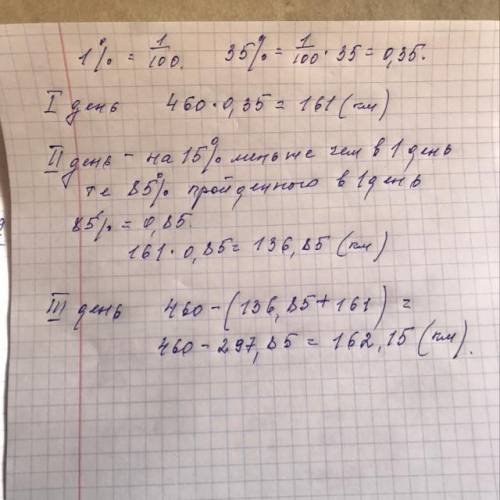 1% = 1/100. 35% = 1/100 · 35 = 0,35.
I день 460 · 0,35 = 161 (км)
II день - на 15% меньше чем в 1 день
те 85% пройденного в 1 день
85% = 0,85.
161 · 0,85 = 136,85 (км)
III день 460 - (136,85 + 161) =
460 - 297,85 = 162,15 (км).